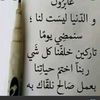 عابرون
و الدنيا ليست لنا ؛
سنمضي يومًا
تاركين خلفنا كل شي
ربنا اختم حياتنا
بعمل صالح نلقاك به